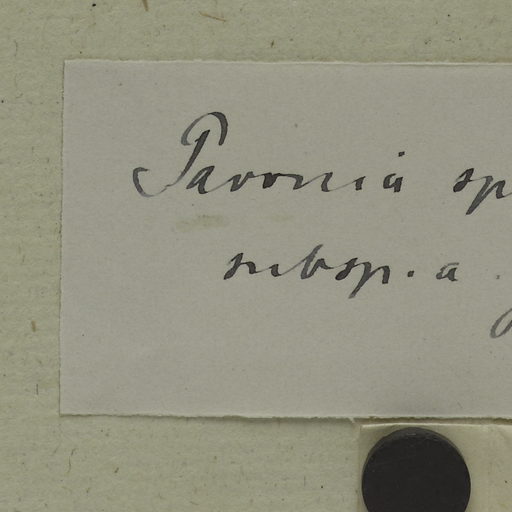 Pavonia sp
subsp. a.